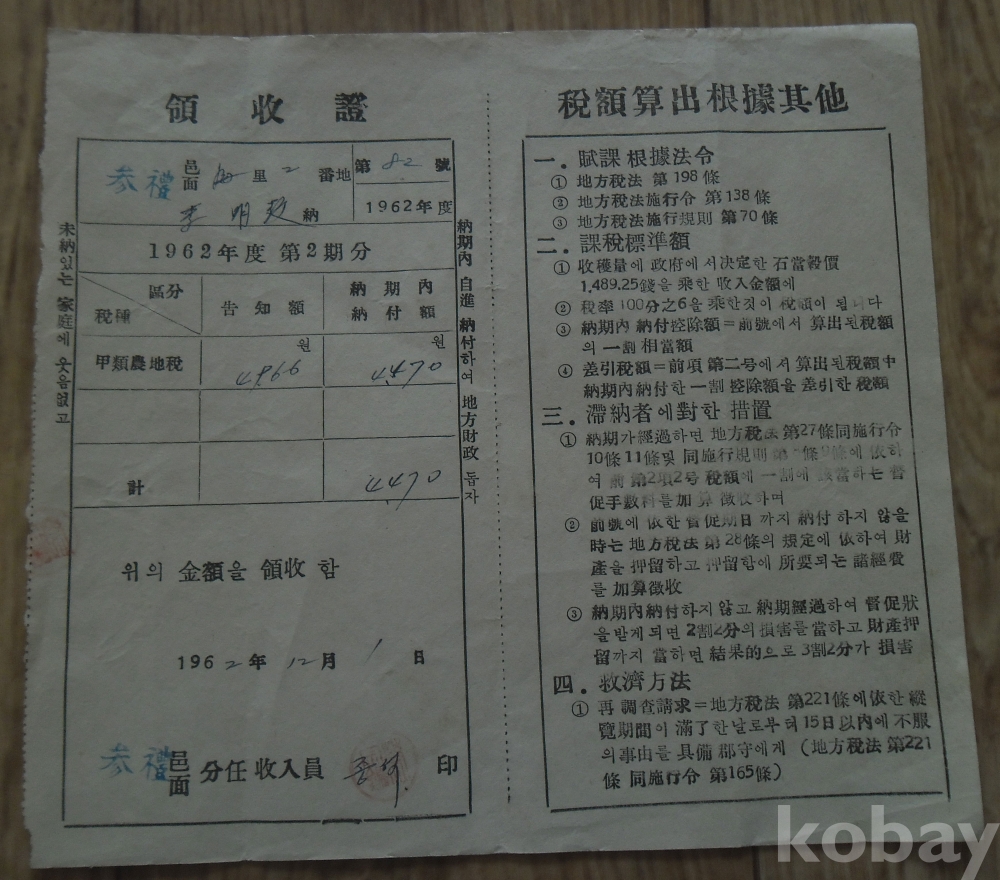 領收證
參禮 邑面 里 2 番地 第 82 號
李明 納 1962年度
1962年度 第2期分
區分 稅種 告知額 納期內納付額
甲類農地稅 4966원 4470원
計 4470
위의 金額을 領收 함
1962年 12月 1日
參禮 邑面 分任 收入員 印
未納있는 家庭에 웃음없고
納期內 自進 納付하여 地方財政 돕자
稅額算出根據其他
一. 賦課 根據法令
① 地方稅法 第198條
② 地方稅法施行令 第138條
③ 地方稅法施行規則 第70條
二. 課稅標準額
① 收穫量에 政府에서 決定한 石當穀價
1,489.25錢을 乘한 收入金額에
② 稅率 100分之6을 乘한것이 稅額이 됩니다
③ 納期內 納付控除額=前號에서 算出된稅額
의 一割 相當額
④ 差引稅額=前項 第二号에서 算出된 稅額中
納期內納付한 一割 控除額을 差引한 稅額
三. 滯納者에對한 措置
① 納期가經過하면 地方稅法 第27條同施行令
10條 11條및 同施行規則 第 條에 依하
여 前 第2項2号 稅額에 一割에 該當하는 督
促手數料를加算 徵收하며
② 前號에 依한 督促期日 까지 納付 하지 않을
時는 地方稅法 第28條의 規定에 依하여 財
產을 押留하고 押留함에 所要되는 諸經費
를 加算徵收
③ 納期內納付하지 않고 納期經過하여 督促狀
을받게되면 2割2分의 損害를當하고 財產押
留까지 當하면 結果的으로 3割2分가 損害
四. 救濟方法
① 再調查請求=地方稅法 第221條에依한 縱
覽期間이 滿了한날로부터 15日以內에 不服
의事由를 具備 郡守에게 (地方稅法 第221
條 同施行令 第165條)
kobay